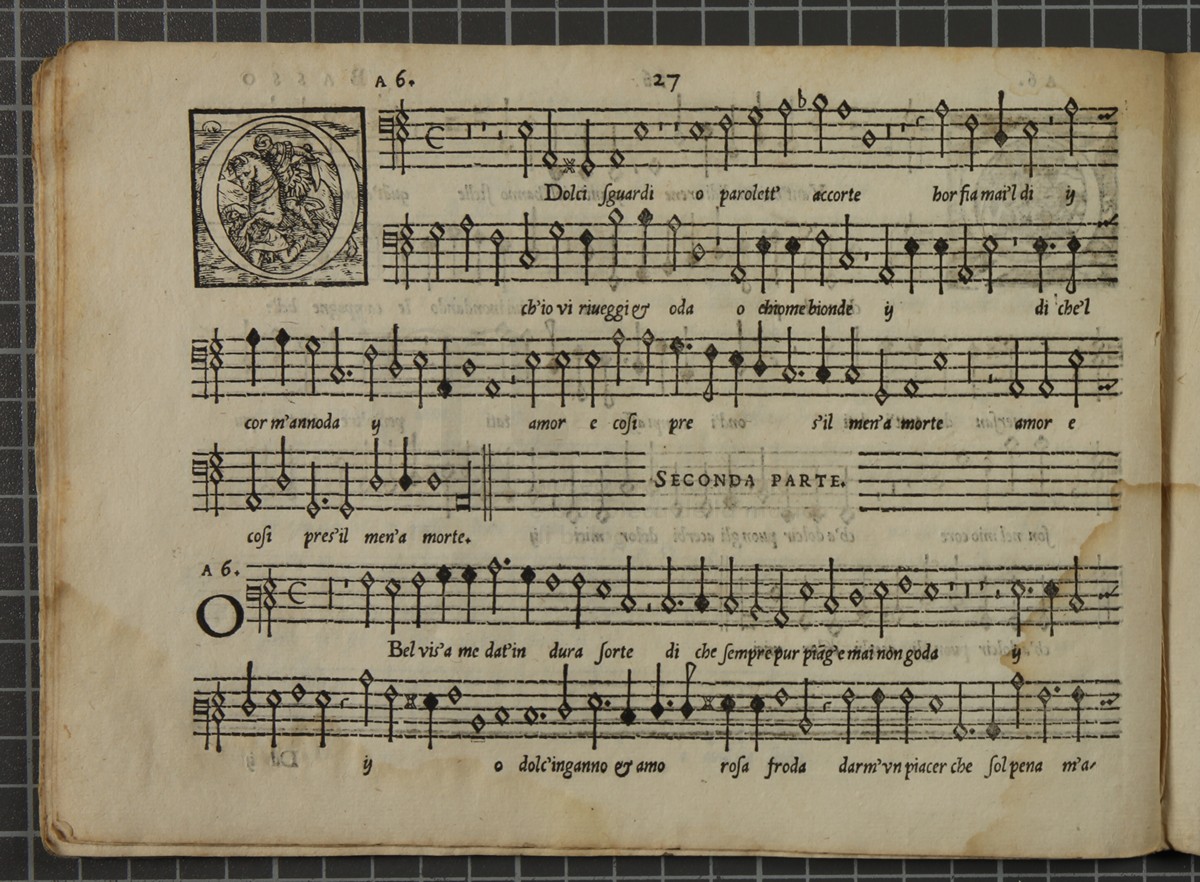 A 6. 27
O Dolci sguardi o parolett' accorte hor fia mai'l di ij
ch'io vi riueggi & oda o chiome bionde ij di che'l
cor m'annoda ij amor e cosi pre s'il men'a morte amor e
SECONDA PARTE.
cosi pres'il men'a morte.
A 6.
O Bel vis'a me dat'in dura sorte di che sempre pur piag'e mai non goda ij
ij o dolc'inganno & amo rosa froda darm'vn piacer che sol pena m'a-